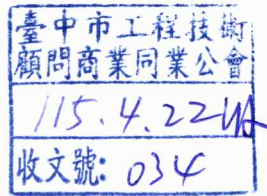 臺中市工程技術
顧問商業同業公會
115.4.22
收文號：034